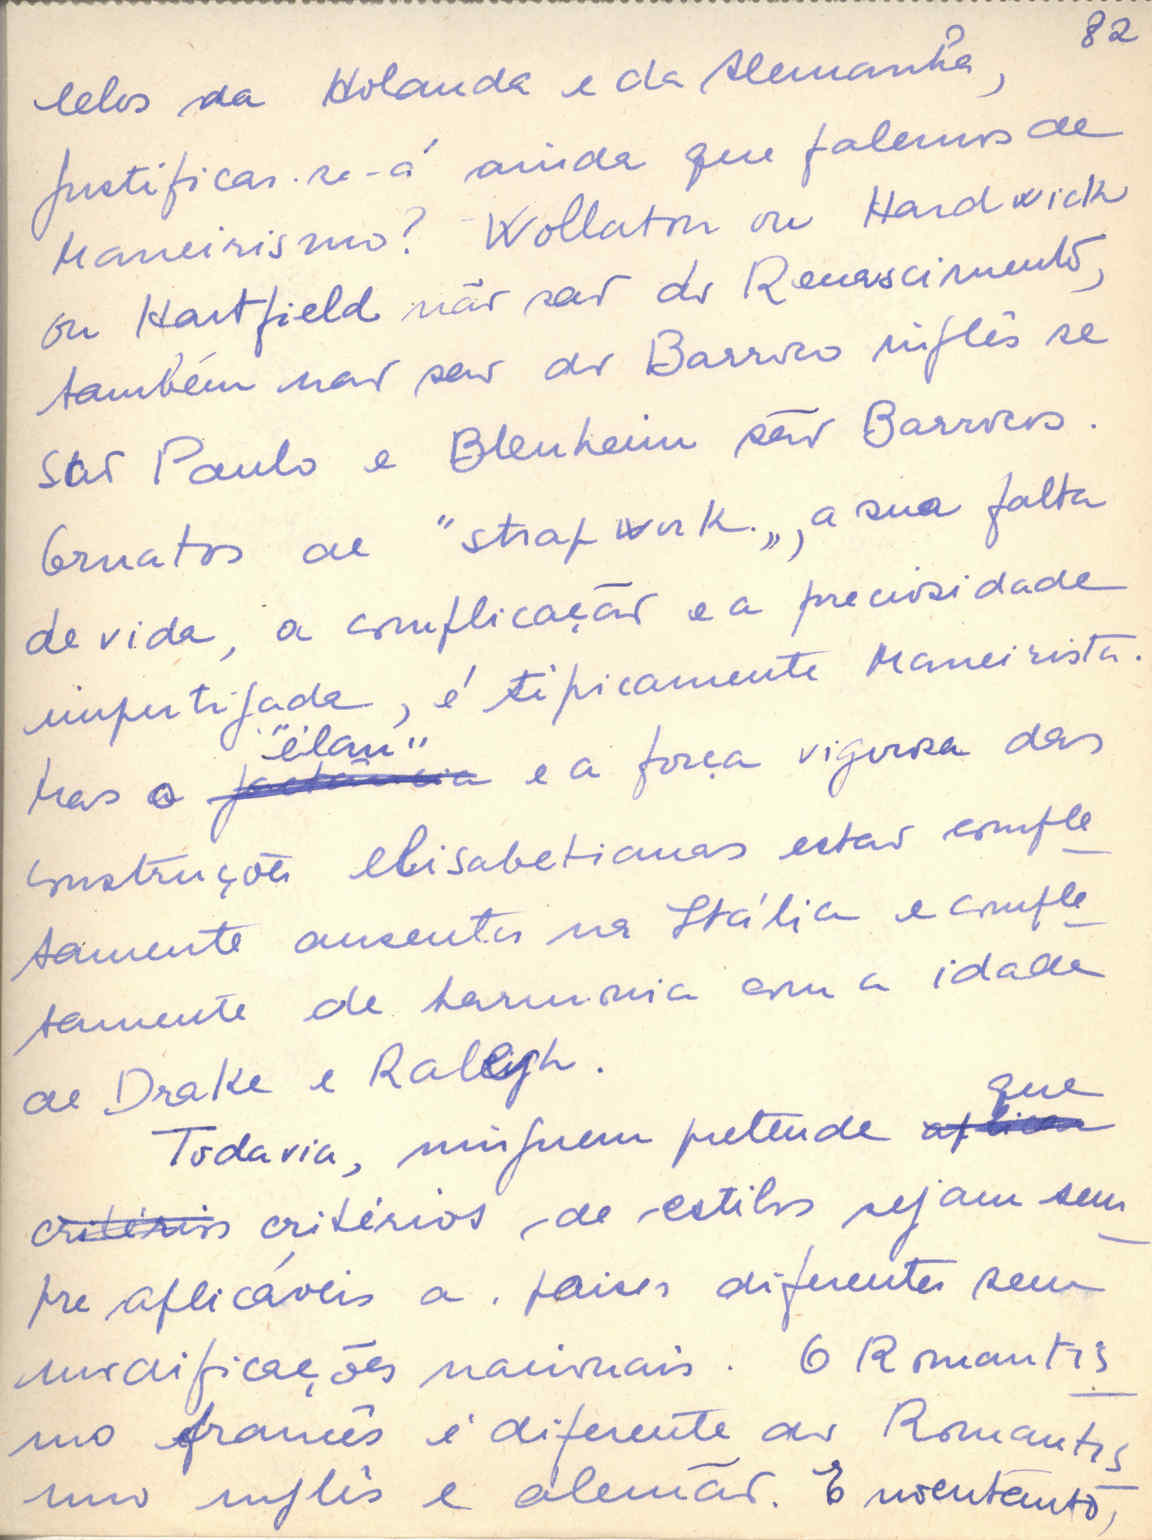 82
lelos da Holanda e da Alemanha,
Justificar-se-á ainda que falemos de
Maneirismo? Wollaton ou Hardwick
ou Hartfield não são do Renascimento,
também não são do Barroco inglês se
São Paulo e Blenheim são Barrocos.
Ornatos de "strapwork", a sua falta
de vida, a complicação e a preciosidade
, é tipicamente Maneirista.
"élan"
Mas o jactância e a força vigorosa das
construções elisabetianas estão comple
tamente ausentes na Itália e comple
tamente de harmonia com a idade
de Drake e Ralegh.
que
Todavia, ninguem pretende aplicar
critérios critérios de estilos sejam sem
pre aplicáveis a paises diferentes sem
modificações nacionais. O Romantis
mo francês é diferente do Romantis
mo inglês e alemão. E noentanto,